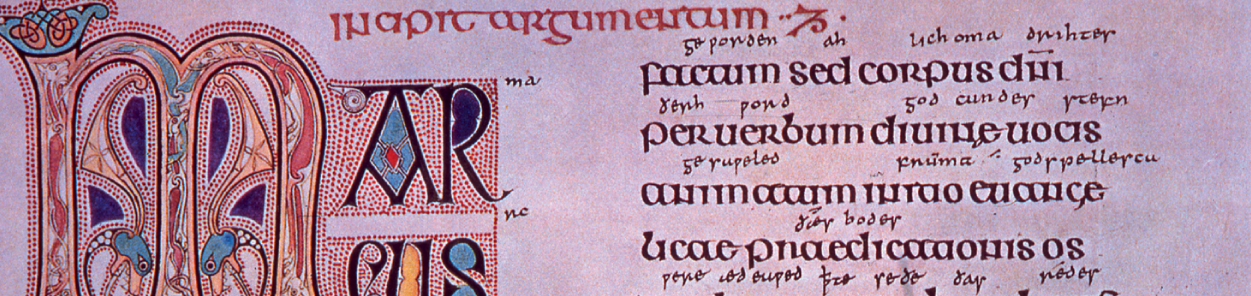 incipit argumentum
MAR
CUS
ma
ne
ge ƿorden ah lichoma
factum sed corpus dni
ðerh ƿord god cunder stefn
per uerbum diuinae uocis
fruma godspellercu
animatum initio euange
ðær boder
licae praedicationis os